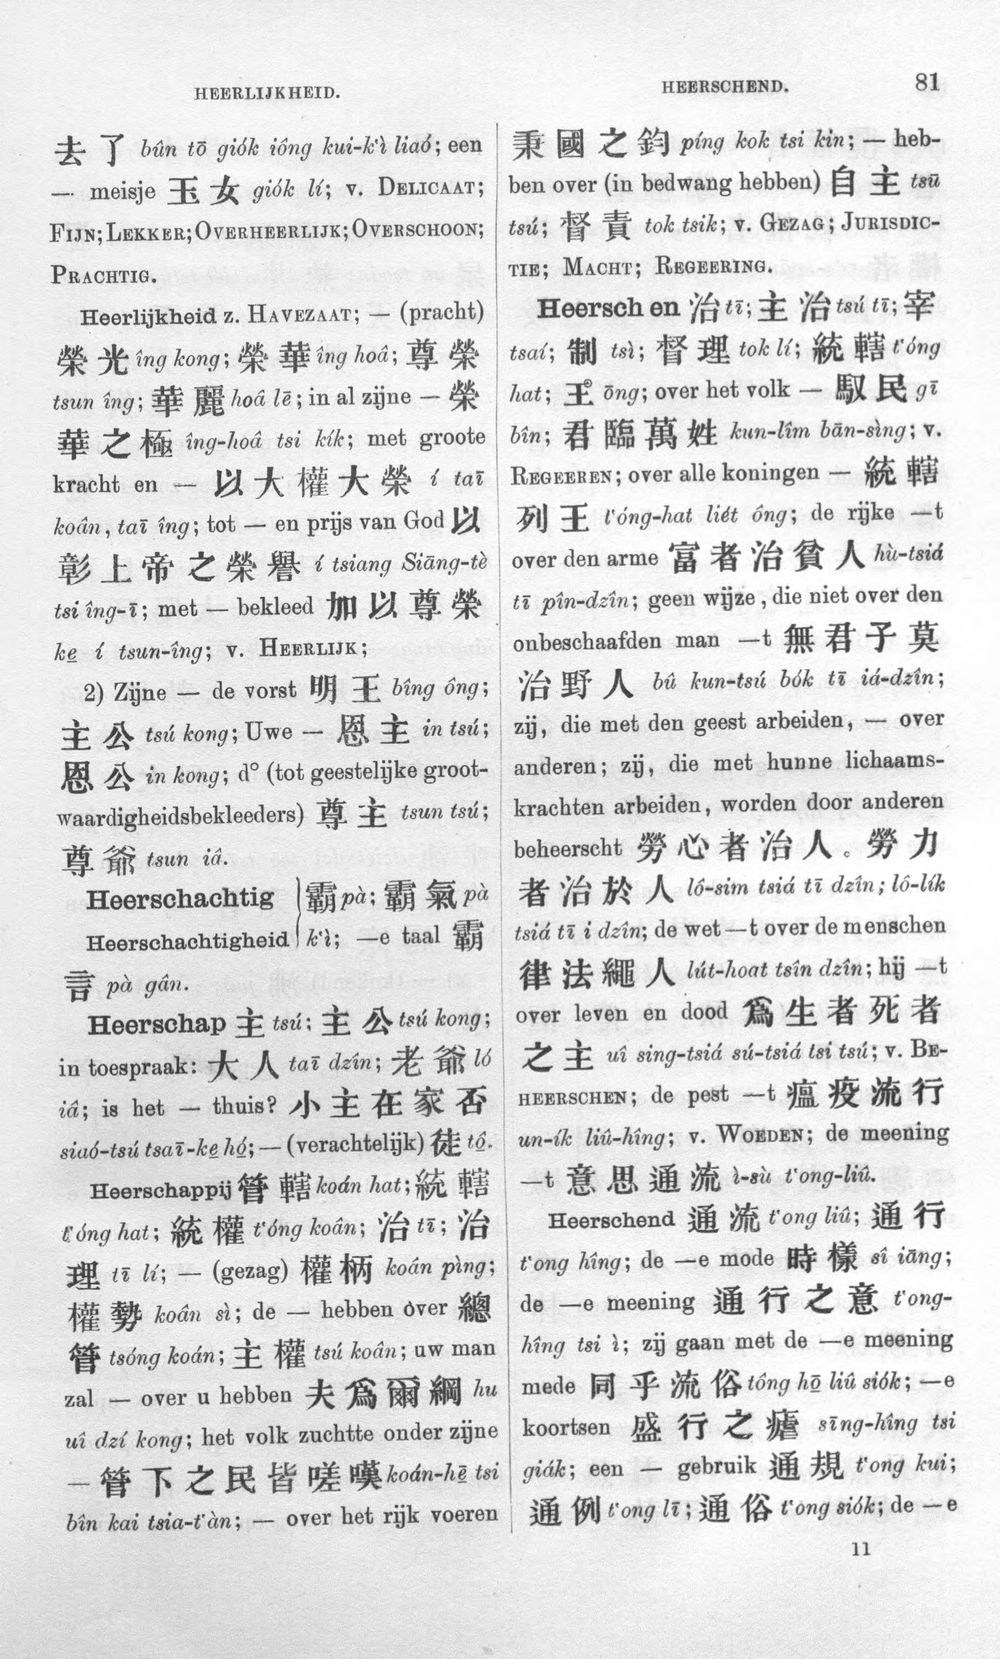 HEERLIJKHEID.
去了 bûn tō giók iông kui-k'ì liaó; een
— meisje 玉女 giók lí; v. DELICAAT;
FIJN; LEKKER; OVERHEERLIJK; OVERSCHOON;
PRACHTIG.
Heerlijkheid z. HAVEZAAT; — (pracht)
榮光 îng kong; 榮華 îng hoâ; 尊榮
tsun îng; 華麗 hoâ lē; in al zijne — 榮
華之極 îng-hoâ tsi kík; met groote
kracht en — 以大權大榮 í taī
koân, taī îng; tot — en prijs van God 以
彰上帝之榮譽 í tsiang Siāng-tè
tsi îng-ī; met — bekleed 加以尊榮
ke í tsun-îng; v. HEERLIJK;
2) Zijne — de vorst 明王 bîng ông;
主公 tsú kong; Uwe — 恩主 in tsú;
恩公 in kong; d° (tot geestelijke groot-
waardigheidsbekleeders) 尊主 tsun tsú;
尊爺 tsun iâ.
Heerschachtig 霸 pà; 霸氣 pà
Heerschachtigheid k'ì; —e taal 霸
言 pà gân.
Heerschap 主 tsú; 主公 tsú kong;
in toespraak: 大人 taī dzîn; 老爺 ló
iâ; is het — thuis? 小主在家否
siaó-tsú tsaī-ke hó; — (verachtelijk) 徒 tô.
Heerschappij 管轄 koán hat; 統轄
t'óng hat; 統權 t'óng koân; 治 tī; 治
理 tī lí; — (gezag) 權柄 koán pìng;
權勢 koân sì; de — hebben over 總
管 tsóng koán; 主權 tsú koân; uw man
zal — over u hebben 夫爲爾綱 hu
uî dzí kong; het volk zuchtte onder zijne
— 管下之民皆嗟嘆 koán-hē tsi
bîn kai tsia-t'àn; — over het rijk voeren
HEERSCHEND. 81
秉國之鈞 píng kok tsi kin; — heb-
ben over (in bedwang hebben) 自主 tsū
tsú; 督責 tok tsik; v. GEZAG; JURISDIC-
TIE; MACHT; REGEERING.
Heerschen 治 tī; 主治 tsú tī; 宰
tsaí; 制 tsì; 督理 tok lí; 統轄 t'óng
hat; 王° ōng; over het volk — 馭民 gī
bîn; 君臨萬姓 kun-lîm bān-sìng; v.
REGEEREN; over alle koningen — 統轄
列王 t'óng-hat liét ông; de rijke —t
over den arme 富者治貧人 hù-tsiá
tī pîn-dzîn; geen wijze, die niet over den
onbeschaafden man —t 無君子莫
治野人 bû kun-tsú bók tī iá-dzîn;
zij, die met den geest arbeiden, — over
anderen; zij, die met hunne lichaams-
krachten arbeiden, worden door anderen
beheerscht 勞心者治人。勞力
者治於人 lô-sim tsiá tī dzîn; lô-lík
tsiá tī i dzîn; de wet —t over de menschen
律法繩人 lút-hoat tsîn dzîn; hij —t
over leven en dood 爲生者死者
之主 uî sing-tsiá sú-tsiá tsi tsú; v. BE-
HEERSCHEN; de pest —t 瘟疫流行
un-ík liû-hîng; v. WOEDEN; de meening
—t 意思通流 ì-sù t'ong-liû.
Heerschend 通流 t'ong liû; 通行
t'ong hîng; de —e mode 時樣 sî iāng;
de —e meening 通行之意 t'ong-
hîng tsi ì; zij gaan met de —e meening
mede 同乎流俗 tông hō liû siók; —e
koortsen 盛行之瘧 sīng-hîng tsi
giák; een — gebruik 通規 t'ong kui;
通例 t'ong lī; 通俗 t'ong siók; de —e
11